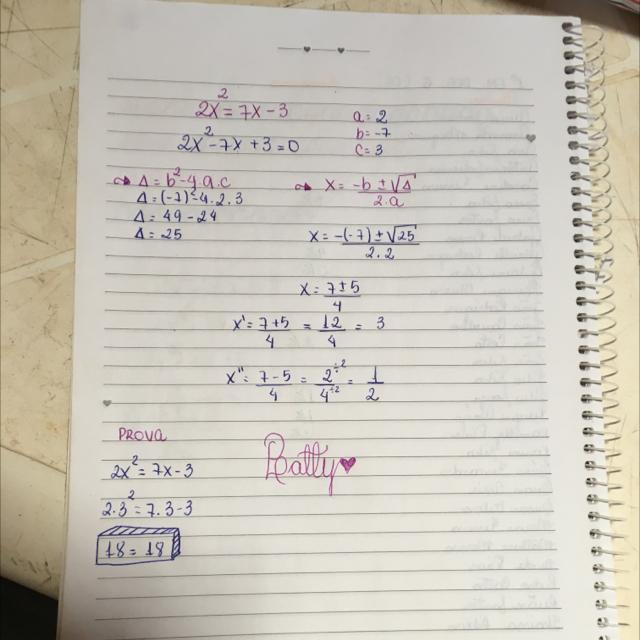 2x² = 7x - 3
2x² - 7x + 3 = 0
a = 2
b = -7
c = 3
Δ = b² - 4.a.c
Δ = (-7)² - 4.2.3
Δ = 49 - 24
Δ = 25
x = -b ± √Δ / 2.a
x = -(-7) ± √25 / 2.2
x = 7 ± 5 / 4
x' = 7 + 5 / 4 = 12 / 4 = 3
x" = 7 - 5 / 4 = 2 ÷2 / 4 ÷2 = 1 / 2
PROVA
2x² = 7x - 3
2.3² = 7.3 - 3
18 = 18
Batty